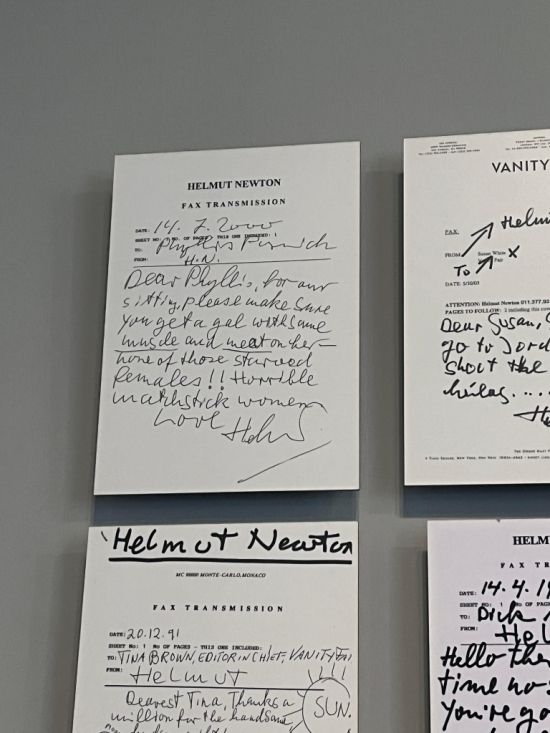 HELMUT NEWTON
FAX TRANSMISSION
DATE: 14. 7. 2000
SHEET NO: 1 NO. OF PAGES THIS ONE INCLUDED: 1
TO: Phyllis
FROM: H.N.
Dear Phyllis, for our
sitting, please make sure
you get a gal with some
muscle and meat on her –
none of those starved
females!! Horrible
matchstick women
Love Helmut
VANITY
FAX
Helm
FROM
Susan White X
Fair
TO
DATE: 5/10/03
ATTENTION: Helmut Newton 011.377.93
PAGES TO FOLLOW: 2 including this cov
Dear Susan, S
go to Jord
shoot the
He
Helmut Newton
MC 98000 MONTE-CARLO, MONACO
FAX TRANSMISSION
DATE: 20.12.91
SHEET NO: 1 NO OF PAGES - THIS ONE INCLUDED:
TO: TINA BROWN, EDITOR IN CHIEF, VANITY FAIR
FROM: Helmut
Dearest Tina, Thanks a
million for the handsome
SUN.
HELM
FAX TR
DATE: 14.4.19
SHEET NO: 1 NO. OF
TO: Dick
FROM: Hel
Hello the
time no s
You're go